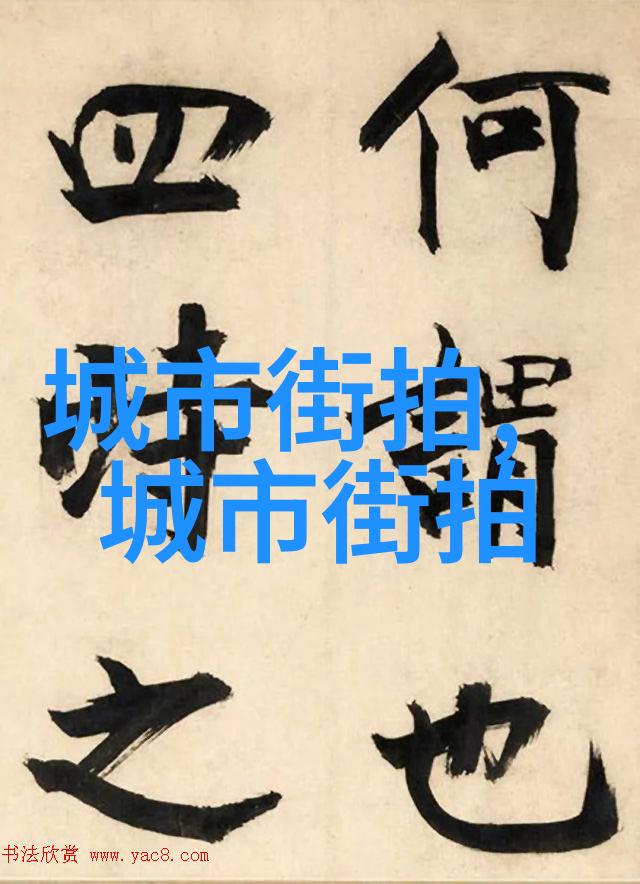 何謂也
四時之
城市街拍,
城市街拍
书法欣赏 www.yac8.com